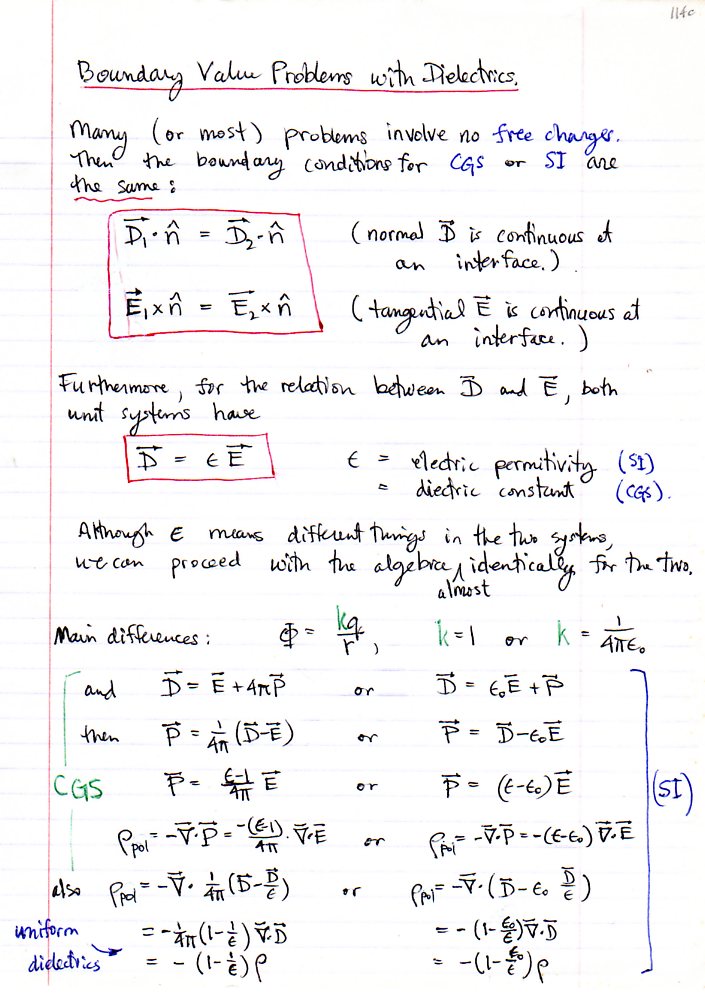 114c
Boundary Value Problems with Dielectrics.
Many (or most) problems involve no free charges.
Then the boundary conditions for CGS or SI are
the same:
D⃗₁·n̂ = D⃗₂·n̂ (normal D⃗ is continuous at
an interface.)
E⃗₁×n̂ = E⃗₂×n̂ (tangential E⃗ is continuous at
an interface.)
Furthermore, for the relation between D⃗ and E⃗, both
unit systems have
D⃗ = ϵ E⃗ ϵ = electric permitivity (SI)
= diectric constant (CGS).
Although ϵ means different things in the two systems,
we can proceed with the algebra ∧ identically for the two.
almost
Main differences: Φ = kq/r, k=1 or k = 1/4πϵ₀
and D⃗ = E⃗+4πP⃗ or D⃗ = ϵ₀E⃗+P⃗
then P⃗ = 1/4π (D⃗-E⃗) or P⃗ = D⃗-ϵ₀E⃗
CGS P⃗ = ϵ-1/4π E⃗ or P⃗ = (ϵ-ϵ₀)E⃗ (SI)
ρpol = -∇⃗·P⃗ = -(ϵ-1)/4π · ∇⃗·E⃗ or ρpol = -∇⃗·P⃗ = -(ϵ-ϵ₀) ∇⃗·E⃗
also ρpol = -∇⃗· 1/4π (D⃗-D⃗/ϵ) or ρpol = -∇⃗·(D⃗-ϵ₀ D⃗/ϵ)
uniform = -1/4π(1-1/ϵ) ∇⃗·D⃗ = -(1-ϵ₀/ϵ)∇⃗·D⃗
dielectrics = -(1-1/ϵ)ρ = -(1-ϵ₀/ϵ)ρ